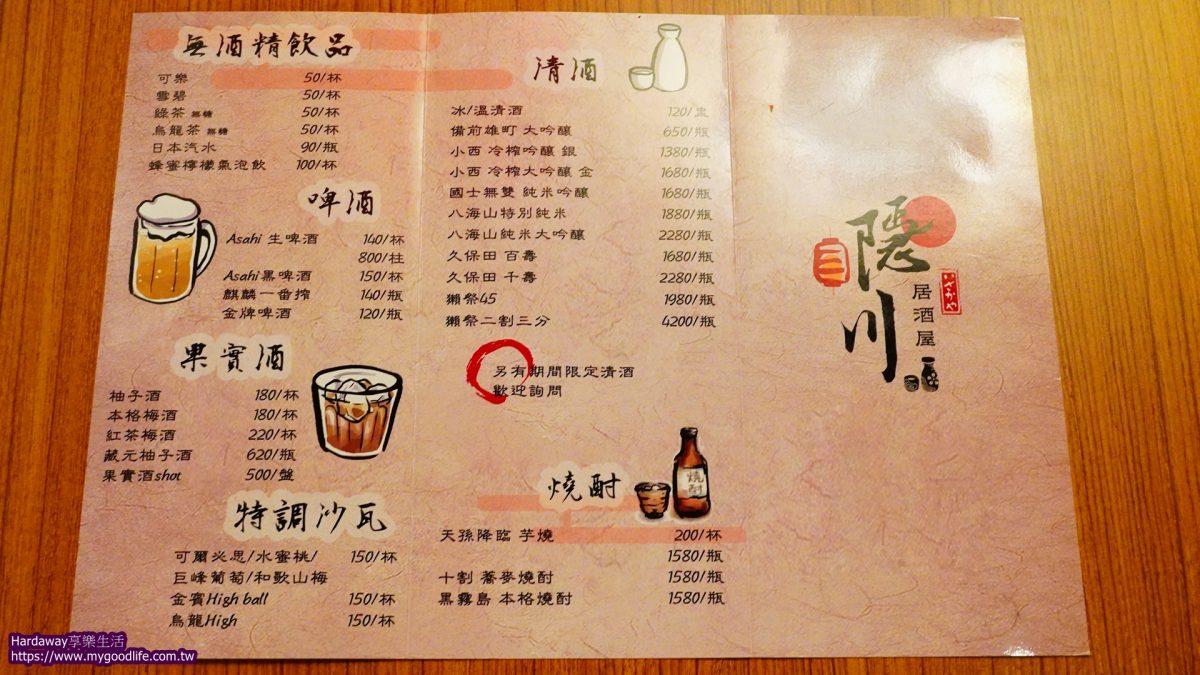 無酒精飲品
可樂 50/杯
雪碧 50/杯
綠茶 無糖 50/杯
烏龍茶 無糖 50/杯
日本汽水 90/瓶
蜂蜜檸檬氣泡飲 100/杯
啤酒
Asahi 生啤酒 140/杯
800/柱
Asahi黑啤酒 150/杯
麒麟一番搾 140/瓶
金牌啤酒 120/瓶
果實酒
柚子酒 180/杯
本格梅酒 180/杯
紅茶梅酒 220/杯
藏元柚子酒 620/瓶
果實酒shot 500/盤
特調沙瓦
可爾必思/水蜜桃/ 150/杯
巨峰葡萄/和歌山梅
金賓High ball 150/杯
烏龍High 150/杯
清酒
冰/溫清酒 120/盅
備前雄町 大吟釀 650/瓶
小西 冷搾吟釀 銀 1380/瓶
小西 冷搾大吟釀 金 1680/瓶
國士無雙 純米吟釀 1680/瓶
八海山特別純米 1880/瓶
八海山純米大吟釀 2280/瓶
久保田 百壽 1680/瓶
久保田 千壽 2280/瓶
獺祭45 1980/瓶
獺祭二割三分 4200/瓶
另有期間限定清酒
歡迎詢問
燒酎
燒酎
天孫降臨 芋燒 200/杯
1580/瓶
十割 蕎麥燒酎 1580/瓶
黑霧島 本格燒酎 1580/瓶
隱川
居酒屋
いざかや
Hardaway享樂生活
https://www.mygoodlife.com.tw